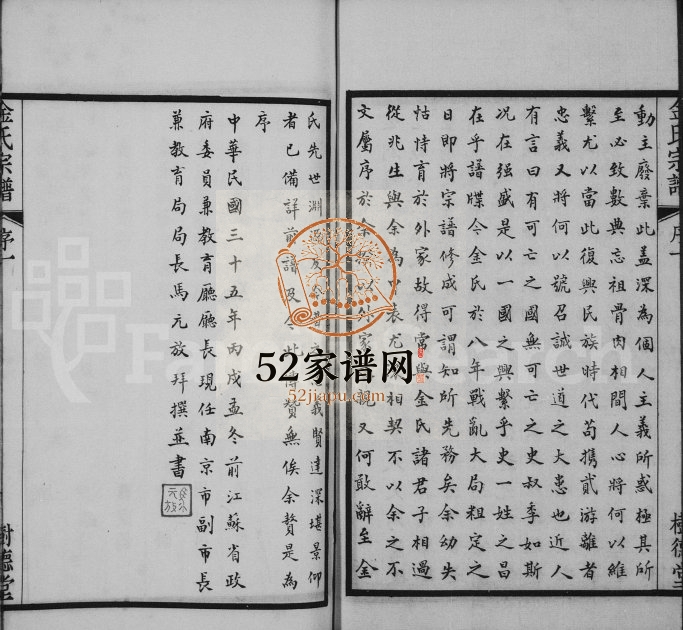 金氏宗譜 序一 樹德堂
動主廢棄此蓋深為個人主義所惑極其所
至必致數典忘祖骨肉相間人心將何以維
繫尤以當此復興民族時代苟攜貳游離者
忠義又將何以號召誠世道之大患也近人
有言曰有可亡之國無可亡之史叔季如斯
况在强盛是以一國之興繫乎史一姓之昌
在乎譜牒今金氏於八年戰亂大局粗定之
日即將宗譜修成可謂知所先務矣余幼失
怙恃育於外家故得常與金氏諸君子相過
從兆生與余為中表尤相契不以余之不
文屬序於余以外家親又何敢辭至金
氏先世淵源及賢達深堪景仰
者已備詳前譜及贊無俟余贅是為
序
中華民國三十五年丙戌孟冬前江蘇省政
府委員兼教育廳廳長現任南京市副市長
兼教育局局長馬元放拜撰並書
金氏宗譜 序一 樹德堂
52家谱网
52jiapu.com